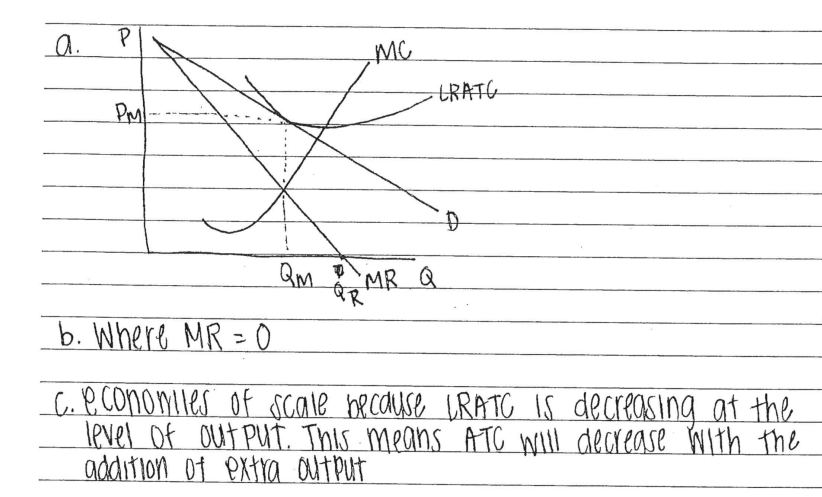 a. P
MC
LRATC
PM
D
QM QR MR Q
b. Where MR = 0
c. economies of scale because LRATC is decreasing at the
level of output. This means ATC will decrease with the
addition of extra output